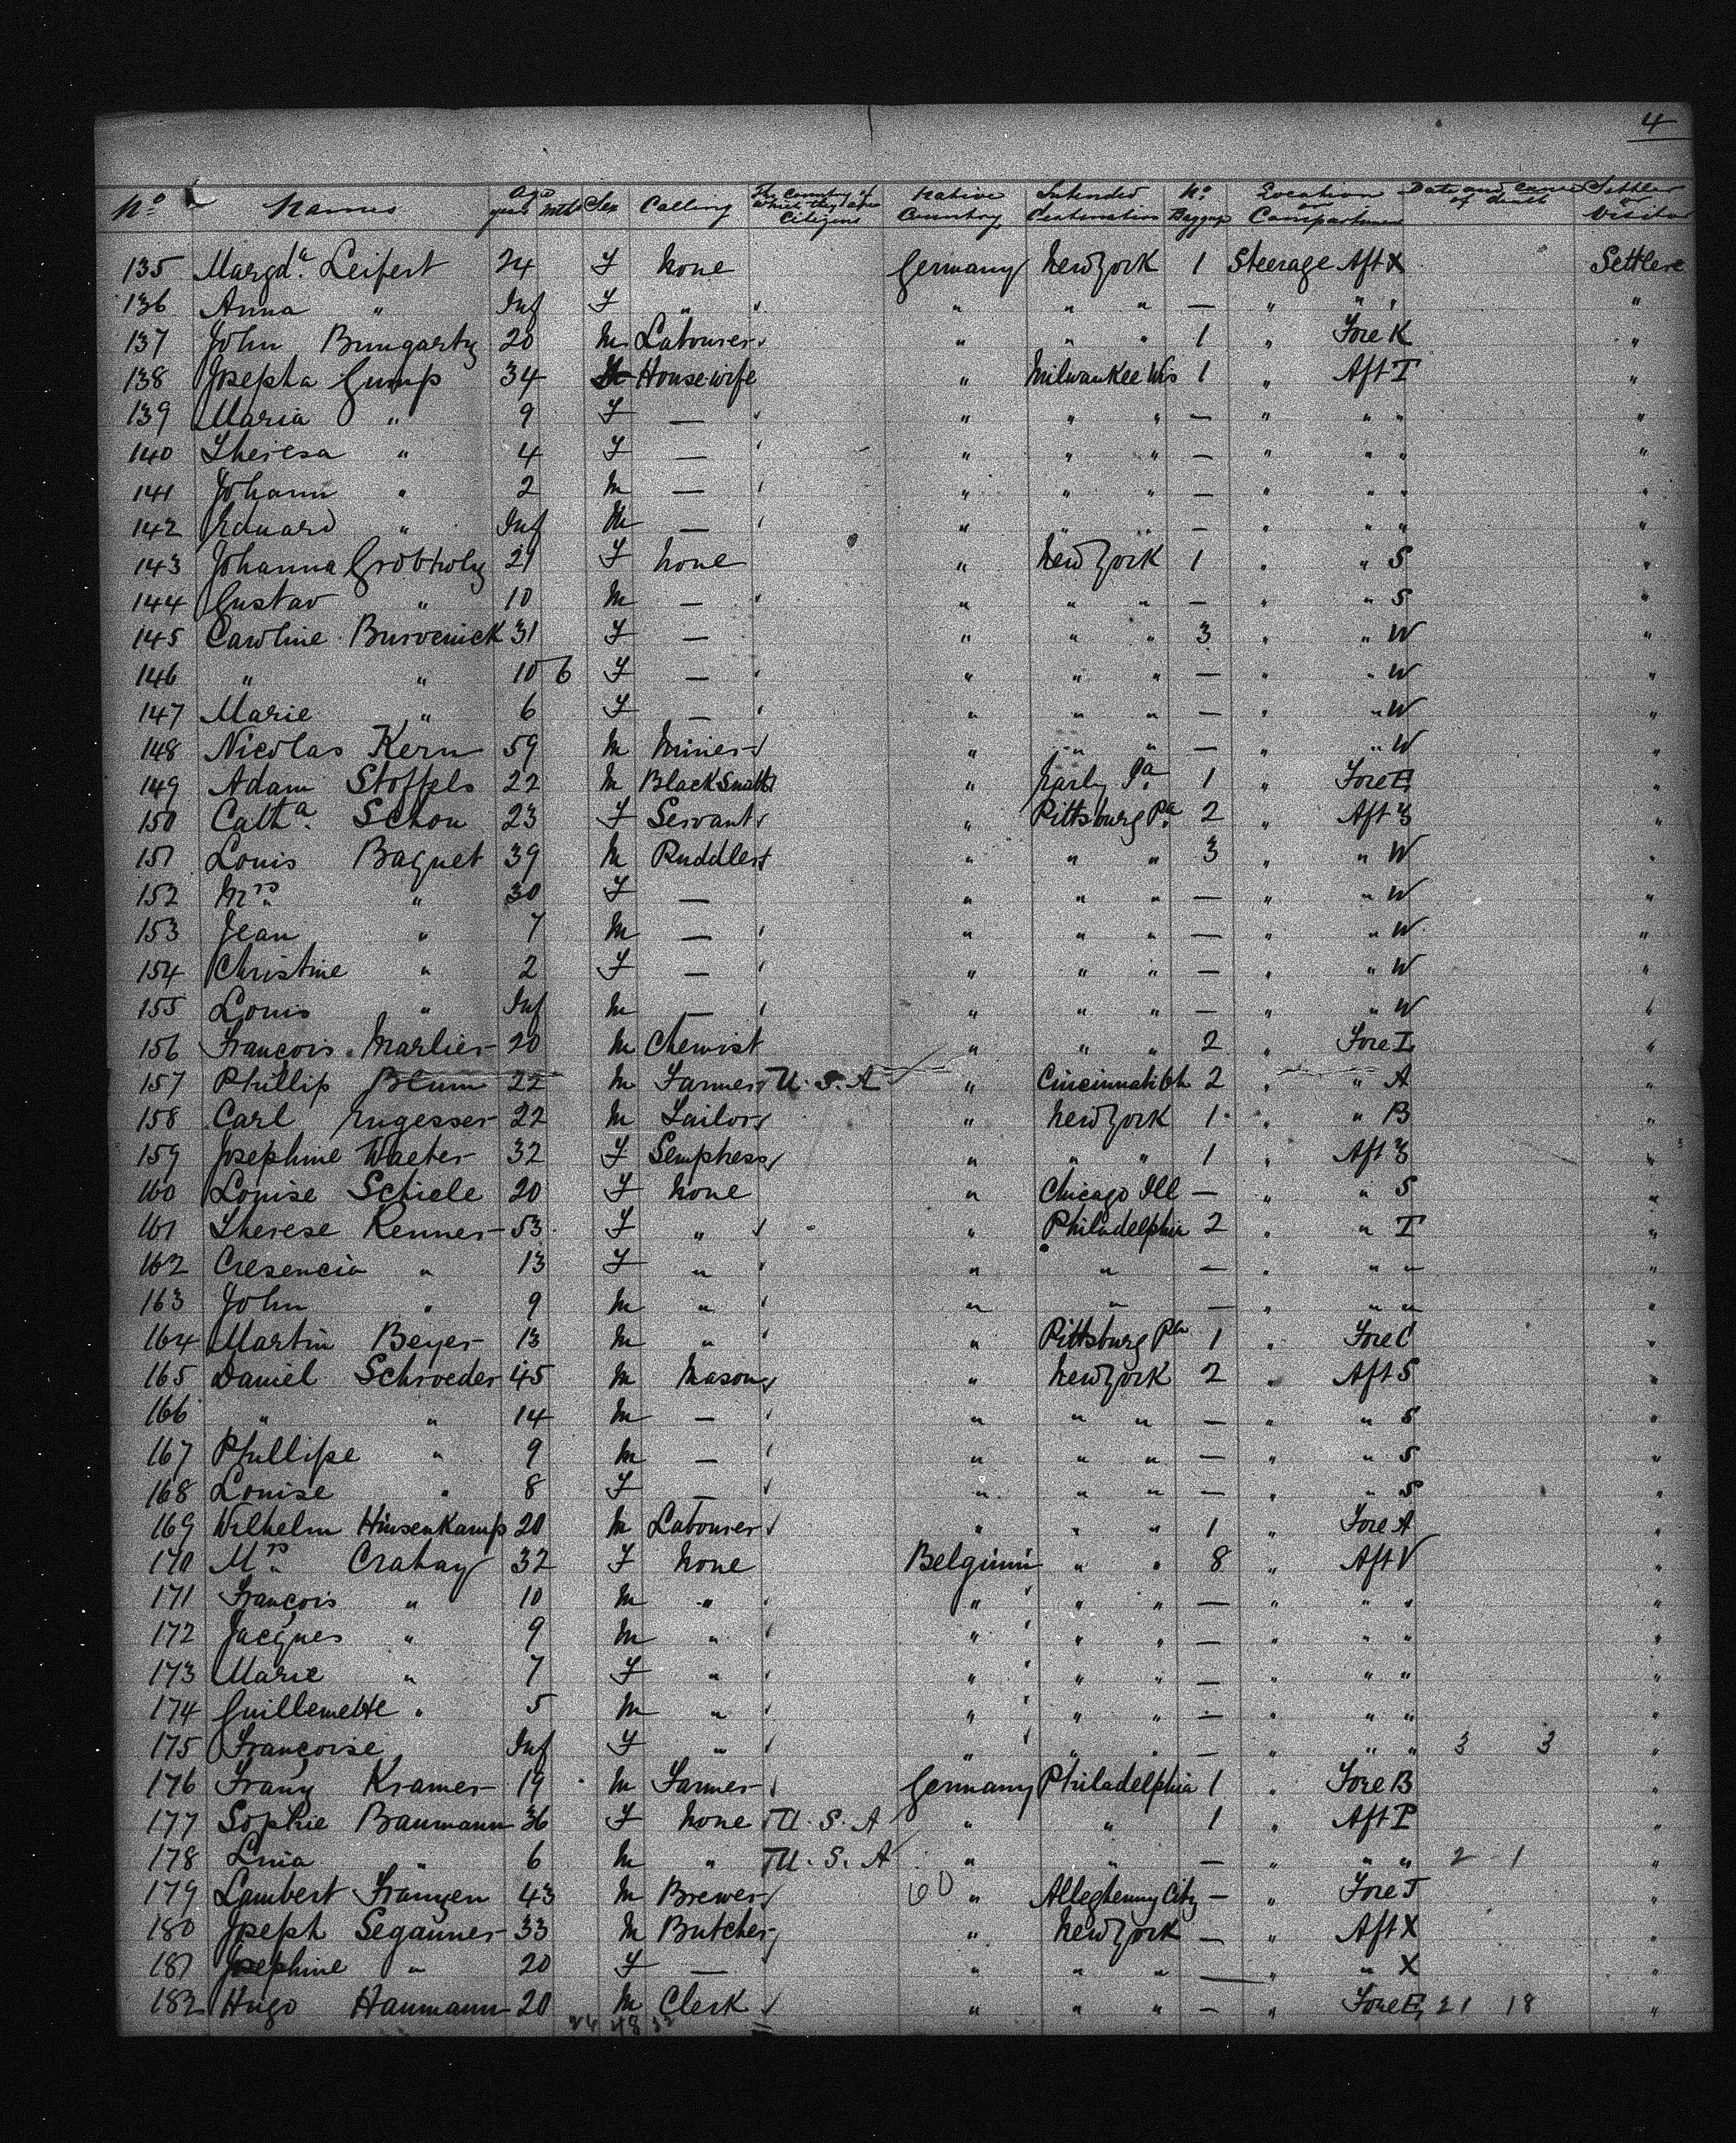 4
No. Names Age years mths Sex Calling The Country of which they are Citizens Native Country Intended Destination No. Baggage Location or Compartment Date and Cause of death Settler or Visitor
135 Margda. Leifert 24 F None Germany New York 1 Steerage Aft X Settler
136 Anna " Inf F " " " " — " " "
137 John Bungarty 20 M Labourer " " " 1 " Fore K "
138 Josepha Gump 34 Housewife " Milwaukee Wis 1 " Aft T "
139 Maria " 9 F — " " " — " " " "
140 Theresa " 4 F — " " " — " " " "
141 Johann " 2 M — " " " — " " " "
142 Eduard " Inf M — " " " — " " " "
143 Johanna 21 F None " New York 1 " " S "
144 Gustav " 10 M — " " " — " " S "
145 Caroline 31 F — " " " 3 " " W "
146 " " 10 6 F — " " " — " " W "
147 Marie " 6 F — " " " — " " W "
148 Nicolas Kern 59 M Miner " " " — " " W "
149 Adam Stoffels 22 M BlackSmith " Pa. 1 " Fore E "
150 Catha. Schon 23 F Servant " Pittsburg Pa. 2 " Aft Z "
151 Louis Baquet 39 M Puddler " " " 3 " " W "
152 Mrs " 30 F — " " " — " " W "
153 Jean " 7 M — " " " — " " W "
154 Christine " 2 F — " " " — " " W "
155 Louis " Inf M — " " " — " " W "
156 Francois Marlier 20 M Chemist " " " 2 " Fore I "
157 Phillip Blum 22 M Farmer U.S.A " Cincinnati Oh 2 " " A "
158 Carl Engesser 22 M Tailor " New York 1 " " B "
159 Josephine Waeber 32 F Semptress " " " 1 " Aft Z "
160 Louise Schiele 20 F None " Chicago Ill — " " S "
161 Therese Renner 53 F " " Philadelphia 2 " " T "
162 Cresencia " 13 F " " " — " " " "
163 John " 9 M " " " — " " " "
164 Martin Beyer 13 M " " Pittsburg Pa 1 " Fore C "
165 Daniel Schroeder 45 M Mason " New York 2 " Aft S "
166 " " 14 M — " " " — " " S "
167 Phillipe " 9 M — " " " — " " S "
168 Louise " 8 F — " " " — " " S "
169 Wilhelm Hinsenkamp 20 M Labourer " " " 1 " Fore A "
170 Mrs Crahay 32 F None Belgium " " 8 " Aft V "
171 François " 10 M " " " " — " " " "
172 Jacques " 9 M " " " " — " " " "
173 Marie " 7 F " " " " — " " " "
174 Guillemette " 5 M " " " " — " " " "
175 Françoise Inf F " " " " — " " " 3 3 "
176 Franz Kramer 19 M Farmer Germany Philadelphia 1 " Fore B "
177 Sophie Baumann 36 F None U.S.A " " 1 " Aft P "
178 Lina " 6 M " U.S.A " " — " " " 2 1 "
179 Lambert Franzen 43 M Brewer " Allegheny City — " Fore J "
180 Joseph Segauner 33 M Butcher " New York — " Aft X "
181 Josephine " 20 F — " " " — " " X "
182 Hugo Haumann 20 M Clerk " " " — " Fore E 21 18 "